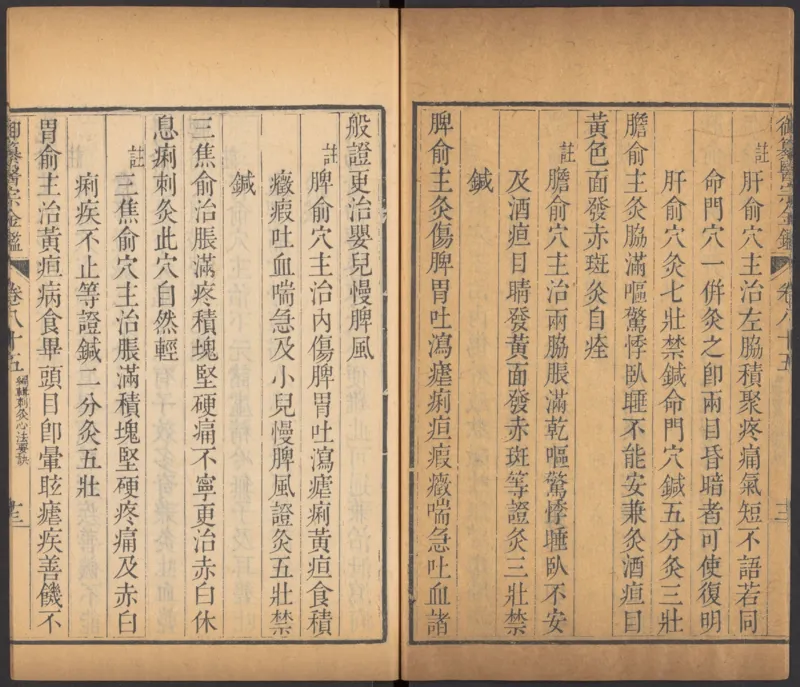 註肝俞穴主治左脇積聚疼痛氣短不語若同
命門穴一併灸之卽兩目昏暗者可使復明
肝俞穴灸七壯禁鍼命門穴鍼五分灸三壯
膽俞主灸脇滿嘔驚悸臥睡不能安兼灸酒疸目
黃色面發赤斑灸自痊
註膽俞穴主治兩脇脹滿乾嘔驚悸睡臥不安
及酒疸目睛發黃面發赤斑等證灸三壯禁
鍼
脾俞主灸傷脾胃吐瀉瘧痢疸瘕癥喘急吐血諸
御纂醫宗金鑑
卷八十五
般證更治嬰兒慢脾風
註脾俞穴主治內傷脾胃吐瀉瘧痢黃疸食積
癥瘕吐血喘急及小兒慢脾風證灸五壯禁
鍼
三焦俞治脹滿疼積塊堅硬痛不寧更治赤白休
息痢刺灸此穴自然輕
註三焦俞穴主治脹滿積塊堅硬疼痛及赤白
痢疾不止等證鍼二分灸五壯
胃俞主治黃疸病食畢頭目卽暈眩瘧疾善饑不
御纂醫宗金鑑
卷八十五
編輯刺灸心法要訣
十三